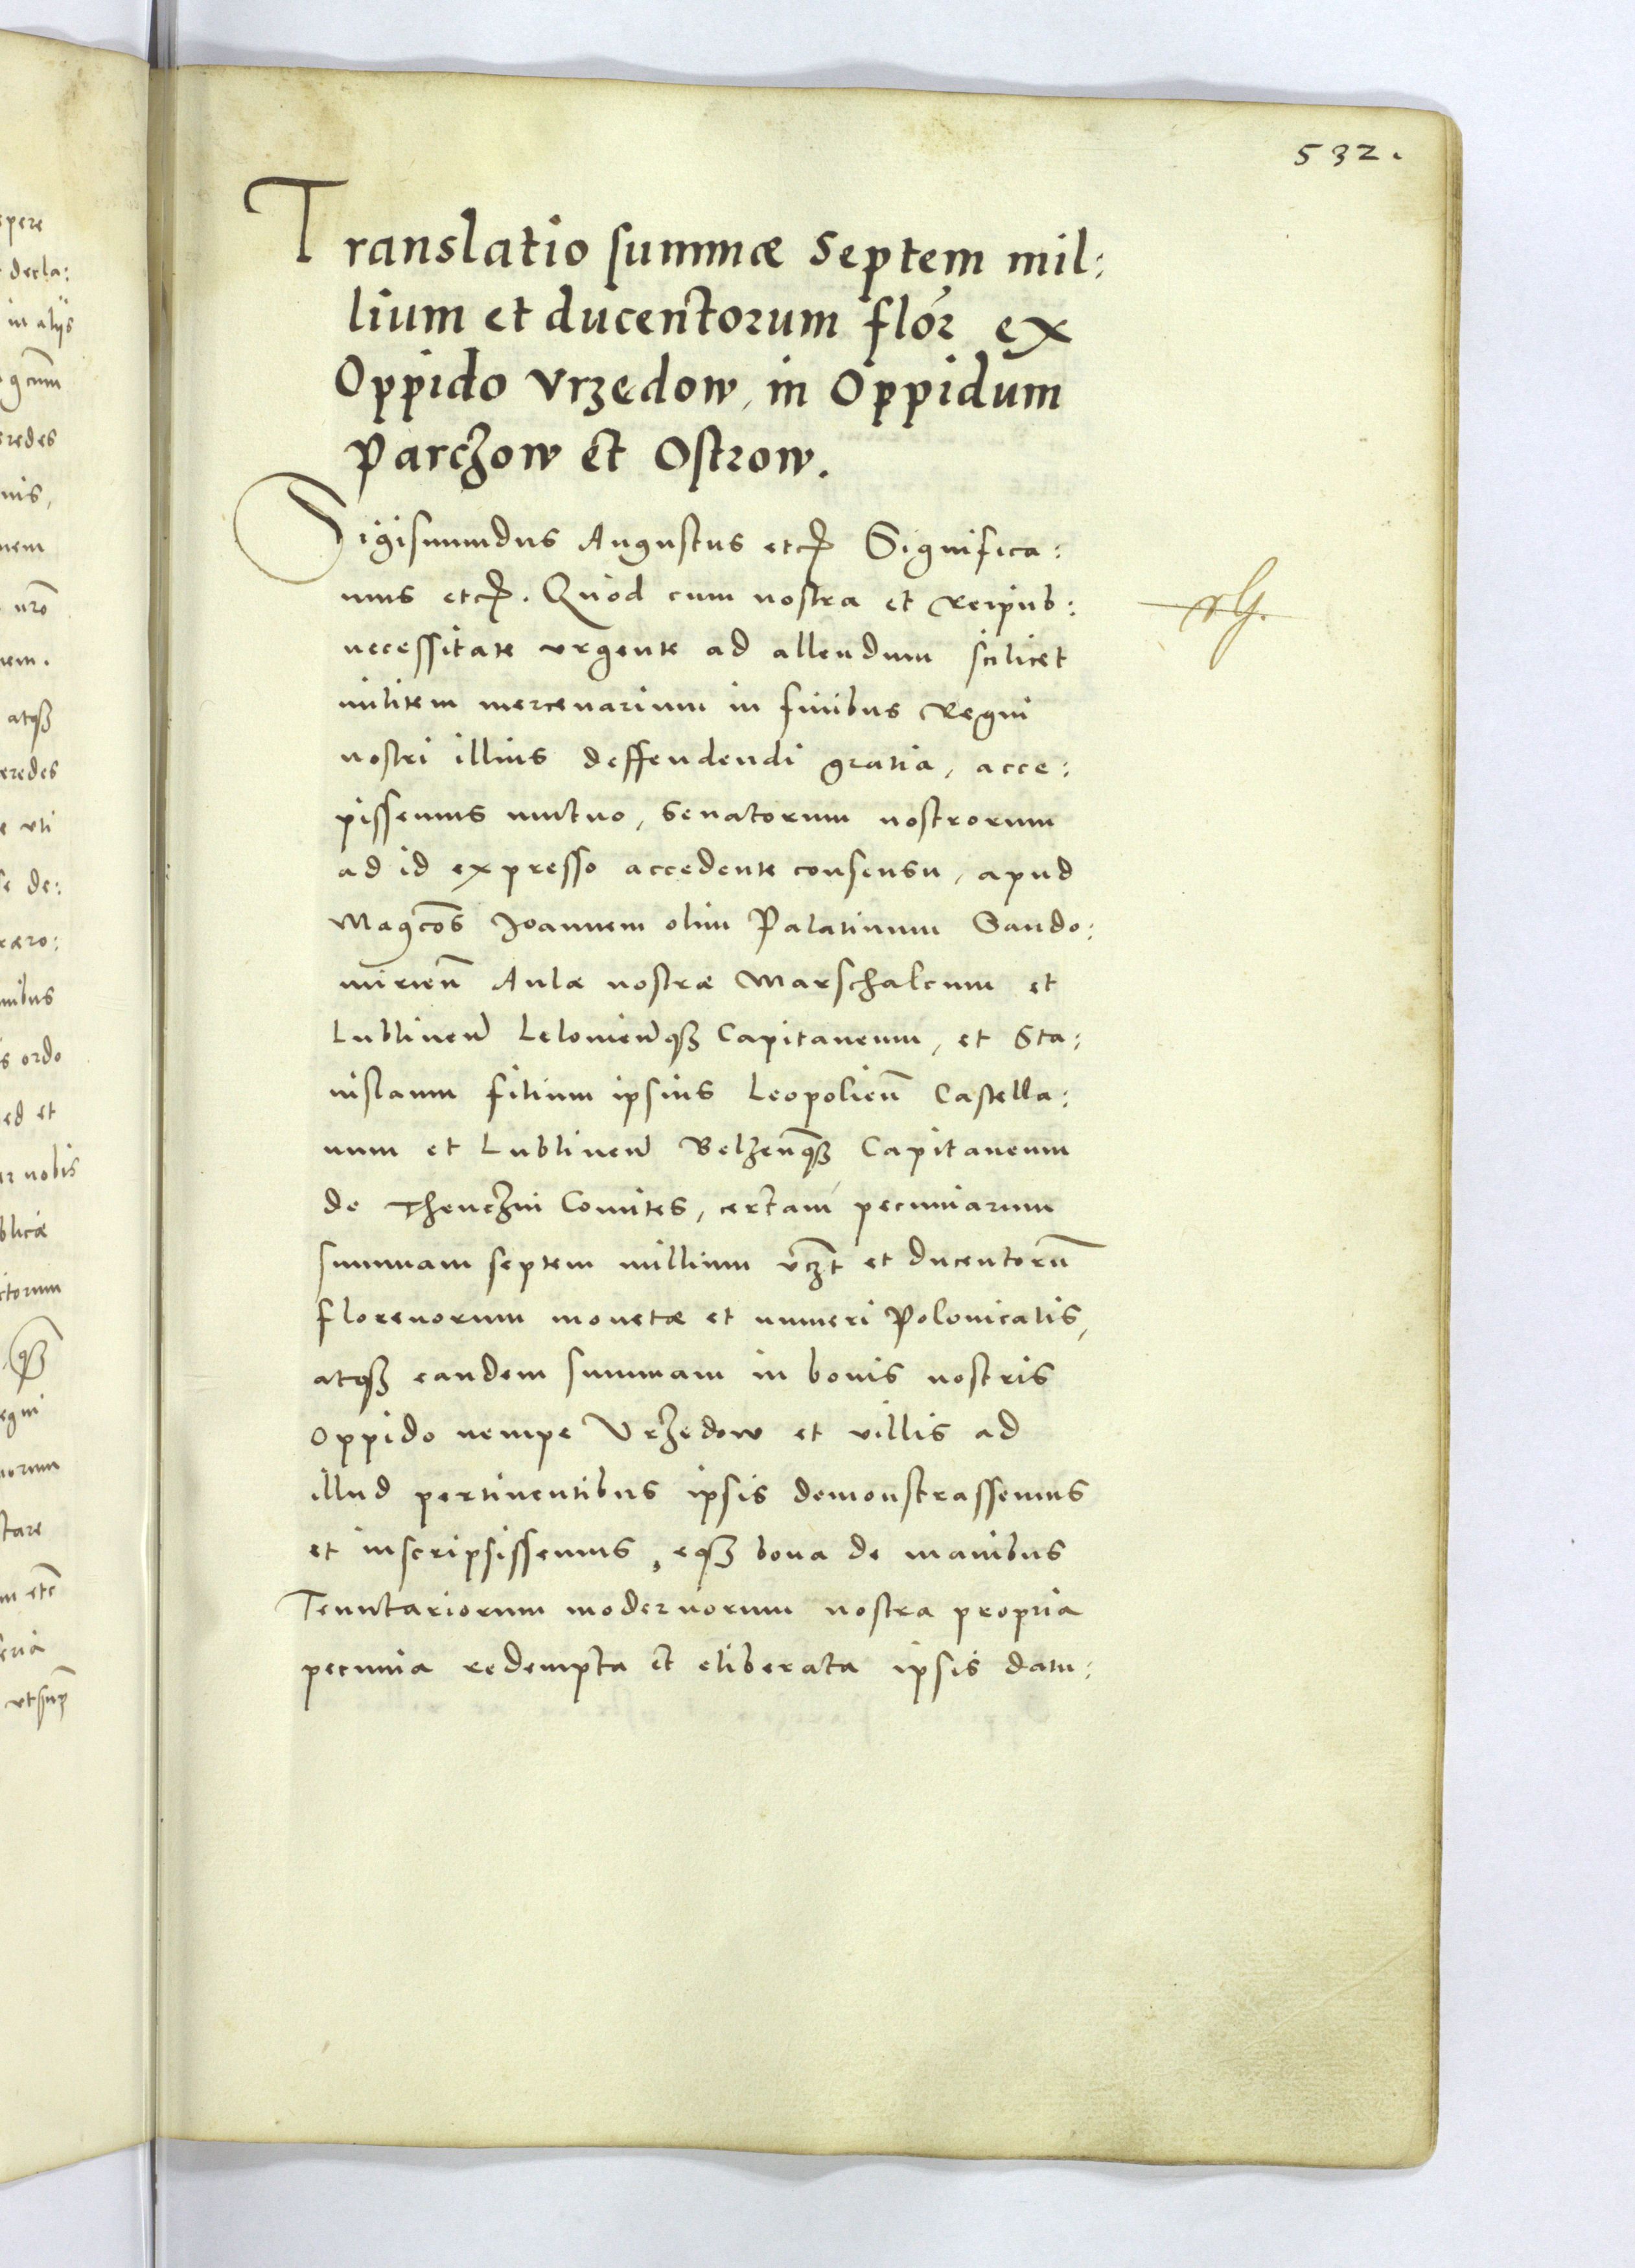 532.
Translatio summæ septem mil:
lium et ducentorum flor ex
Oppido Vrzedow, in Oppidum
Parczow et Ostrow.
Sigismundus Augustus etc. Significa:
mus etc. Quod cum nostra et Reipub:
necessitate vrgente ad allendum scilicet
militem mercenarium in finibus Regni
nostri illius deffendendi gratia, acce:
pissemus mutuo, senatorum nostrorum
ad id expresso accedente consensu, apud
Magcos Joannem olim Palatinum Sando:
mirien Aulæ nostræ Marschalcum et
Lublinen Lelovienqȝ Capitaneum, et Sta:
nislaum filium ipsius Leopolien Castella:
num et Lublinen Belzenqȝ Capitaneum
de Thenczin Comites, certam pecuniarum
summam septem millium vczt et ducentorũ
florenorum monetæ et numeri Polonicalis,
atqȝ eandem summam in bonis nostris
oppido nempe Vrzedow et villis ad
illud pertinentibus ipsis demonstrassemus
et inscripsissemus, eqȝ bona de manibus
Tenutariorum modernorum nostra propria
pecunia redempta et eliberata ipsis datu:
pere
decla:
in alijs
gcum
redes
nis,
nem
nro
nem.
atqȝ
eredes
vti
de:
mibus
ordo
ed et
nobis
blicæ
ctorum
qȝ
egni
norum
tare
etc
eria
vtsup